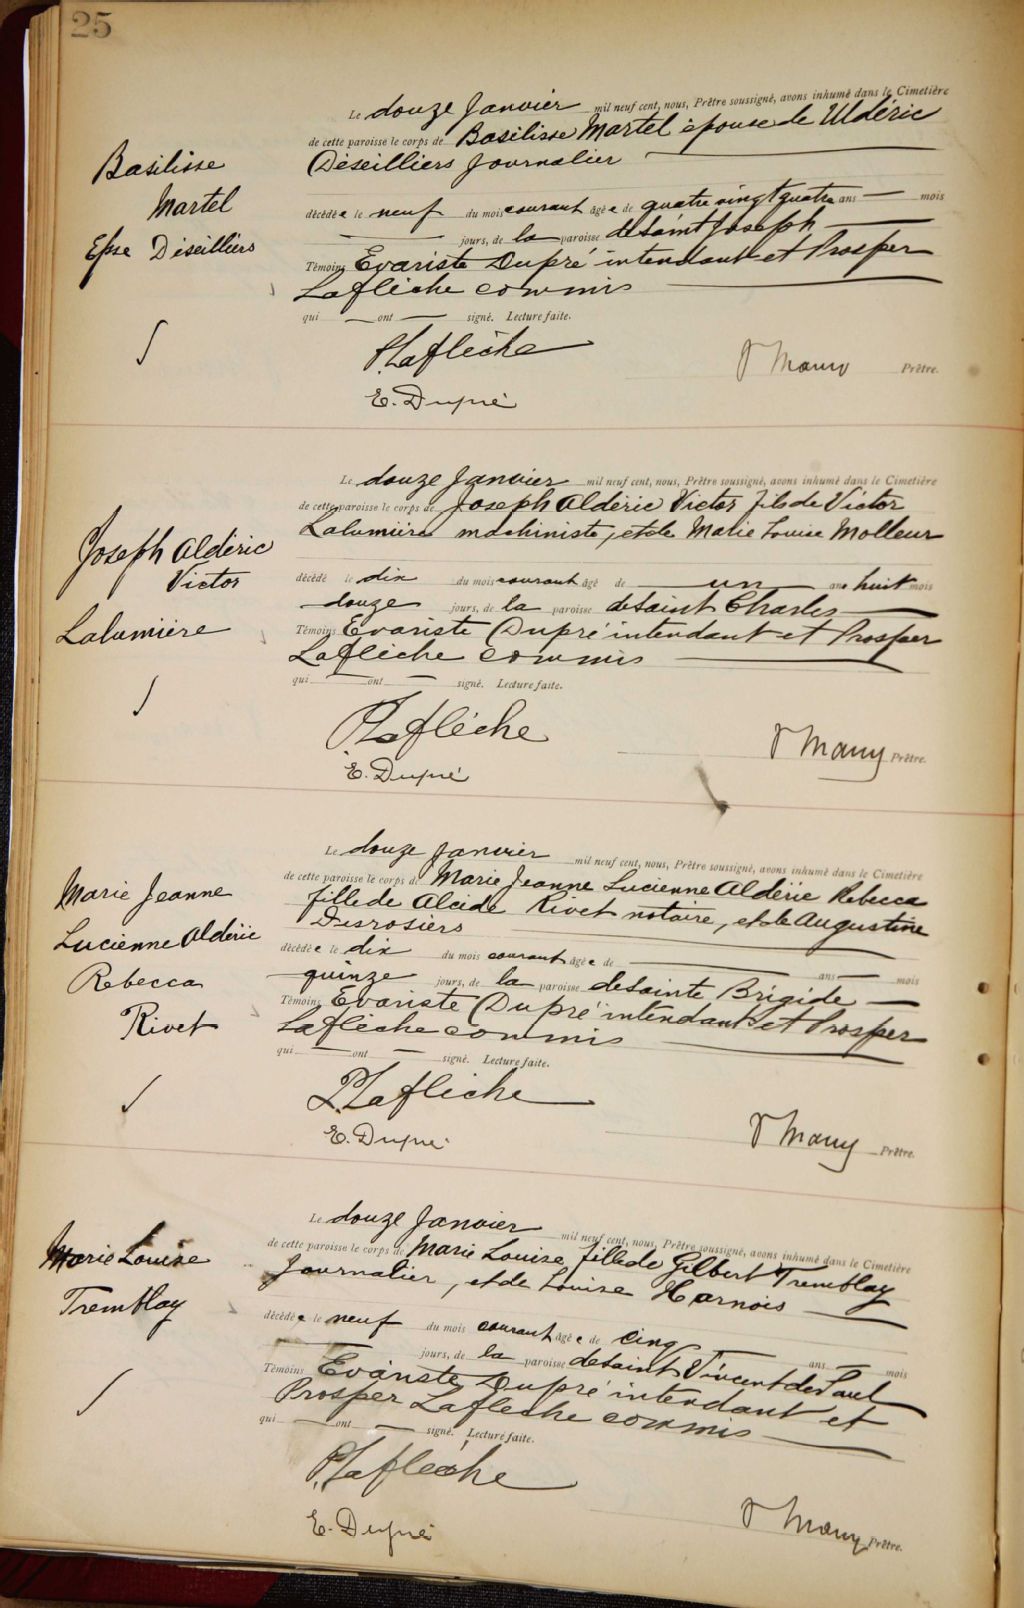 25
Le douze Janvier mil neuf cent, nous, Prêtre soussigné, avons inhumé dans le Cimetière
de cette paroisse le corps de Basilisse Martel épouse de Uldéric
Déseilliers Journalier
Basilisse
Martel
Epse Déseilliers
décédée le neuf du mois courant âgée de quatre vingt quatre ans mois
jours, de la paroisse de Saint Joseph
Témoins Evariste Dupré intendant et Prosper
Laflèche commis
qui ont signé. Lecture faite.
P. Laflèche
E. Dupré
Prêtre.
Le douze Janvier mil neuf cent, nous, Prêtre soussigné, avons inhumé dans le Cimetière
de cette paroisse le corps de Joseph Aldéric Victor fils de Victor
Lalumière machiniste, et de Marie Louise Molleur
Joseph Aldéric
Victor
Lalumière
décédé le dix du mois courant âgé de un an huit mois
douze jours, de la paroisse de Saint Charles
Témoins Evariste Dupré intendant et Prosper
Laflèche commis
qui ont signé. Lecture faite.
P. Laflèche
E. Dupré
Prêtre.
Le douze Janvier mil neuf cent, nous, Prêtre soussigné, avons inhumé dans le Cimetière
de cette paroisse le corps de Marie Jeanne Lucienne Aldérie Rebecca
fille de Alcide Rivet notaire, et de Augustine
Desrosiers
Marie Jeanne
Lucienne Aldérie
Rebecca
Rivet
décédée le dix du mois courant âgée de ans mois
quinze jours, de la paroisse de Sainte Brigide
Témoins Evariste Dupré intendant et Prosper
Laflèche commis
qui ont signé. Lecture faite.
P. Laflèche
E. Dupré
Prêtre.
Le douze Janvier mil neuf cent, nous, Prêtre soussigné, avons inhumé dans le Cimetière
de cette paroisse le corps de Marie Louise fille de Gilbert Tremblay
Journalier, et de Louise Harnois
Marie Louise
Tremblay
décédée le neuf du mois courant âgée de cinq ans mois
jours, de la paroisse de Saint Vincent de Paul
Témoins Evariste Dupré intendant et
Prosper Laflèche commis
qui ont signé. Lecture faite.
P. Laflèche
E. Dupré
Prêtre.